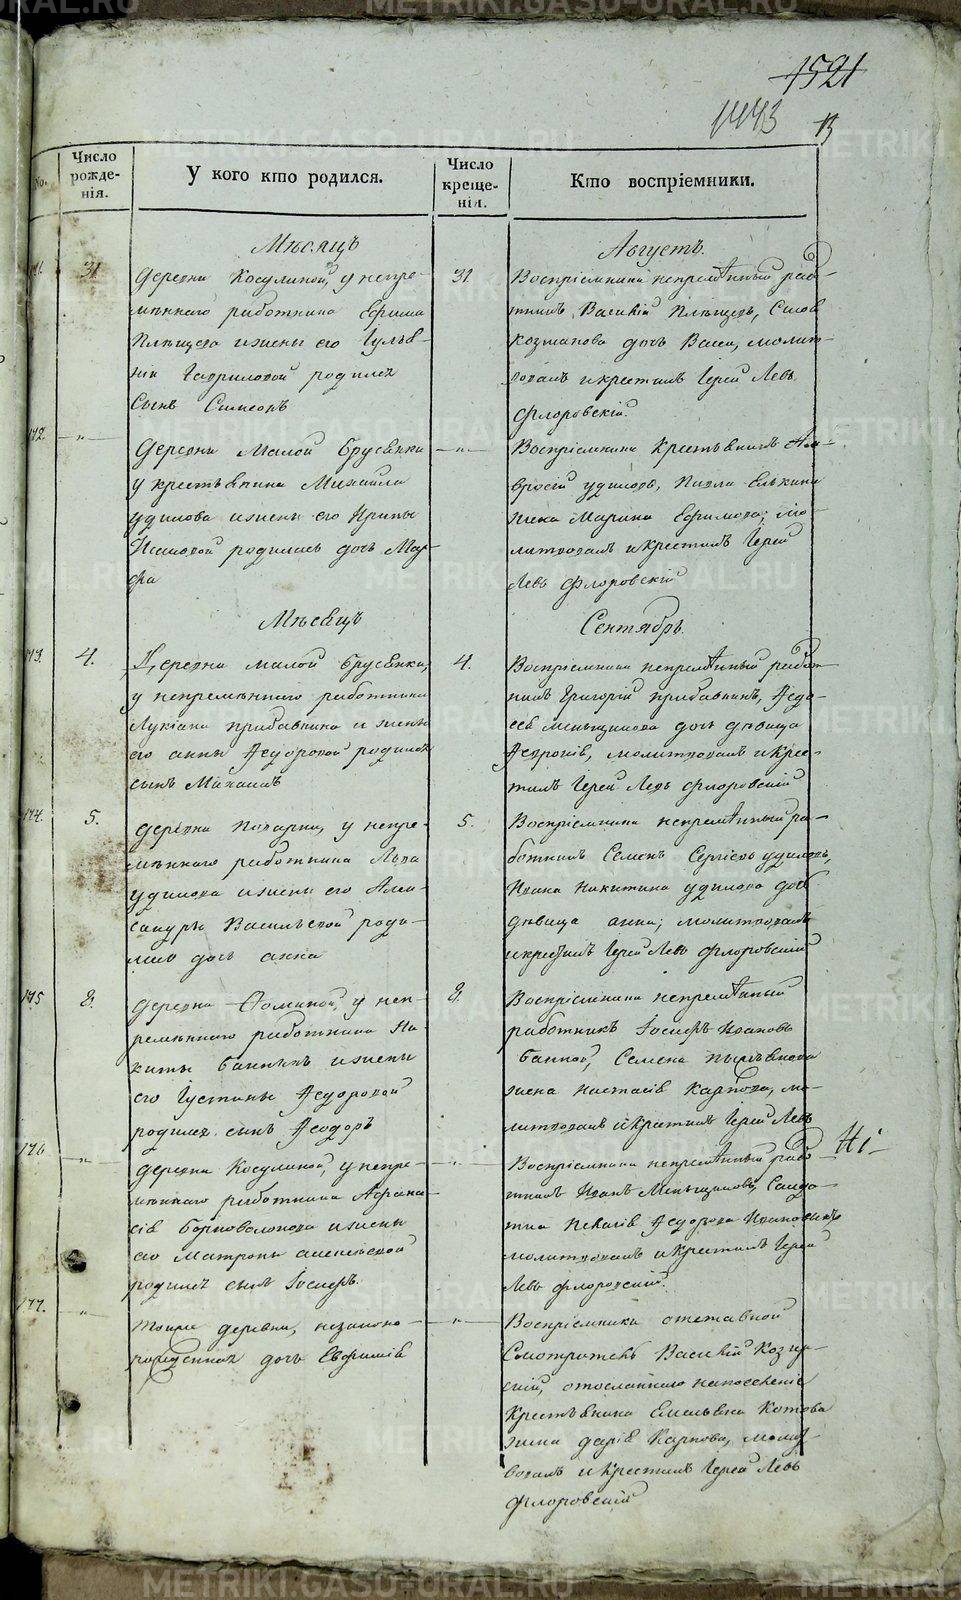 1521
1443
13
No.
Число рожде-нія.
У кого кто родился.
Число креще-нія.
Кто воспріемники.
Мѣсяцъ
Августъ.
31.
деревни Косулиной, у непре-
мѣннаго работника Ефима
Плѣщева и жены его Гульѣ-
ніи Гавриловой родился
сынъ Симеонъ
31.
Воспріемники непремѣнный рабо-
тникъ Василій Плѣщевъ,
Козманова дочь Васса, молит-
вовалъ и крестилъ Іерей Левъ
Флоровскій.
172
— „ —
Деревни Малой Брусѣнки
у крестьянина Михаила
Удилова и жены его Ирины
Исаковой родилась дочь Мар-
фа
— „ —
Воспріемники Крестьянинъ Ам-
вросій Удиловъ, Павла Елькина
жена Марина Ефимова; мо-
литвовалъ и крестилъ Іерей
Левъ Флоровскій
Мѣсяцъ
Сентябрь.
173.
4.
Деревни Малой Брусѣнки,
у непремѣннаго работника
Лукіана Прибавкина и жены
его Анны Ѳедоровой родился
сынъ Михаилъ
4.
Воспріемники непремѣнный работ-
никъ Григорій Прибавкинъ, Ѳедо-
сѣя Меньщикова дочь дѣвица
молитвовалъ и крес-
тилъ Іерей Левъ Флоровскій
174.
5.
деревни Поварни, у непре-
мѣннаго работника Льва
Удилова и жены его Алек-
сандры Васильевой роди-
лась дочь Анна
5.
Воспріемники непремѣнный ра-
ботникъ Семенъ Сергѣевъ Удиловъ,
Ивана Никитина Удилова дочь
дѣвица Анна; молитвовалъ
и крестилъ Іерей Левъ Флоровскій
175
8.
деревни Ѳоминой, у неп-
ремѣннаго работника Ни-
киты Банныхъ и жены
его Іустины Ѳедоровой
родился сынъ Ѳеодоръ
8.
Воспріемники непремѣнный
работникъ Іосифъ Ивановъ
Банной, Семена
жена Настасія Карпова, мо-
литвовалъ и крестилъ Іерей Левъ
176
— „ —
деревни Косулиной, у непре-
мѣннаго работника Афана-
сія Борноволокова и жены
его Матроны
родился сынъ Іосифъ.
— „ —
Воспріемники непремѣнный рабо-
тникъ Иванъ Меньщиковъ, Салда-
тка Пелагія Ѳедорова
молитвовалъ и крестилъ Іерей
Левъ Флоровскій.
177.
— „ —
тоиже деревни, незаконо-
рожденная дочь Евфимія
— „ —
Воспріемники отставной
Смотритель Василій
отосланнаго на поселеніе
Крестьянина Емельяна Котова
жена Дарія Карпова, молит-
вовалъ и крестилъ Іерей Левъ
Флоровскій
METRIKI.GASO-URAL.RU